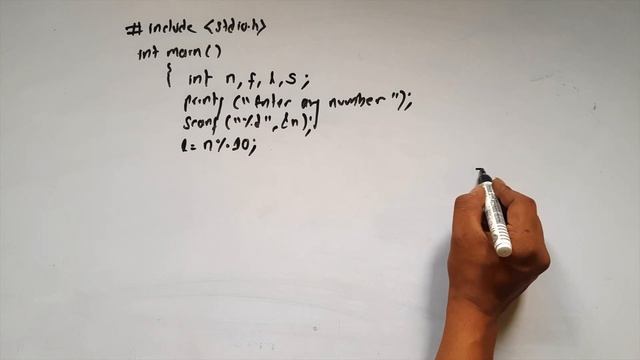 # include <stdio.h>
int main()
{ int n, f, l, s;
printf ("Enter any number");
scanf ("%d", &n);
l = n % 10;